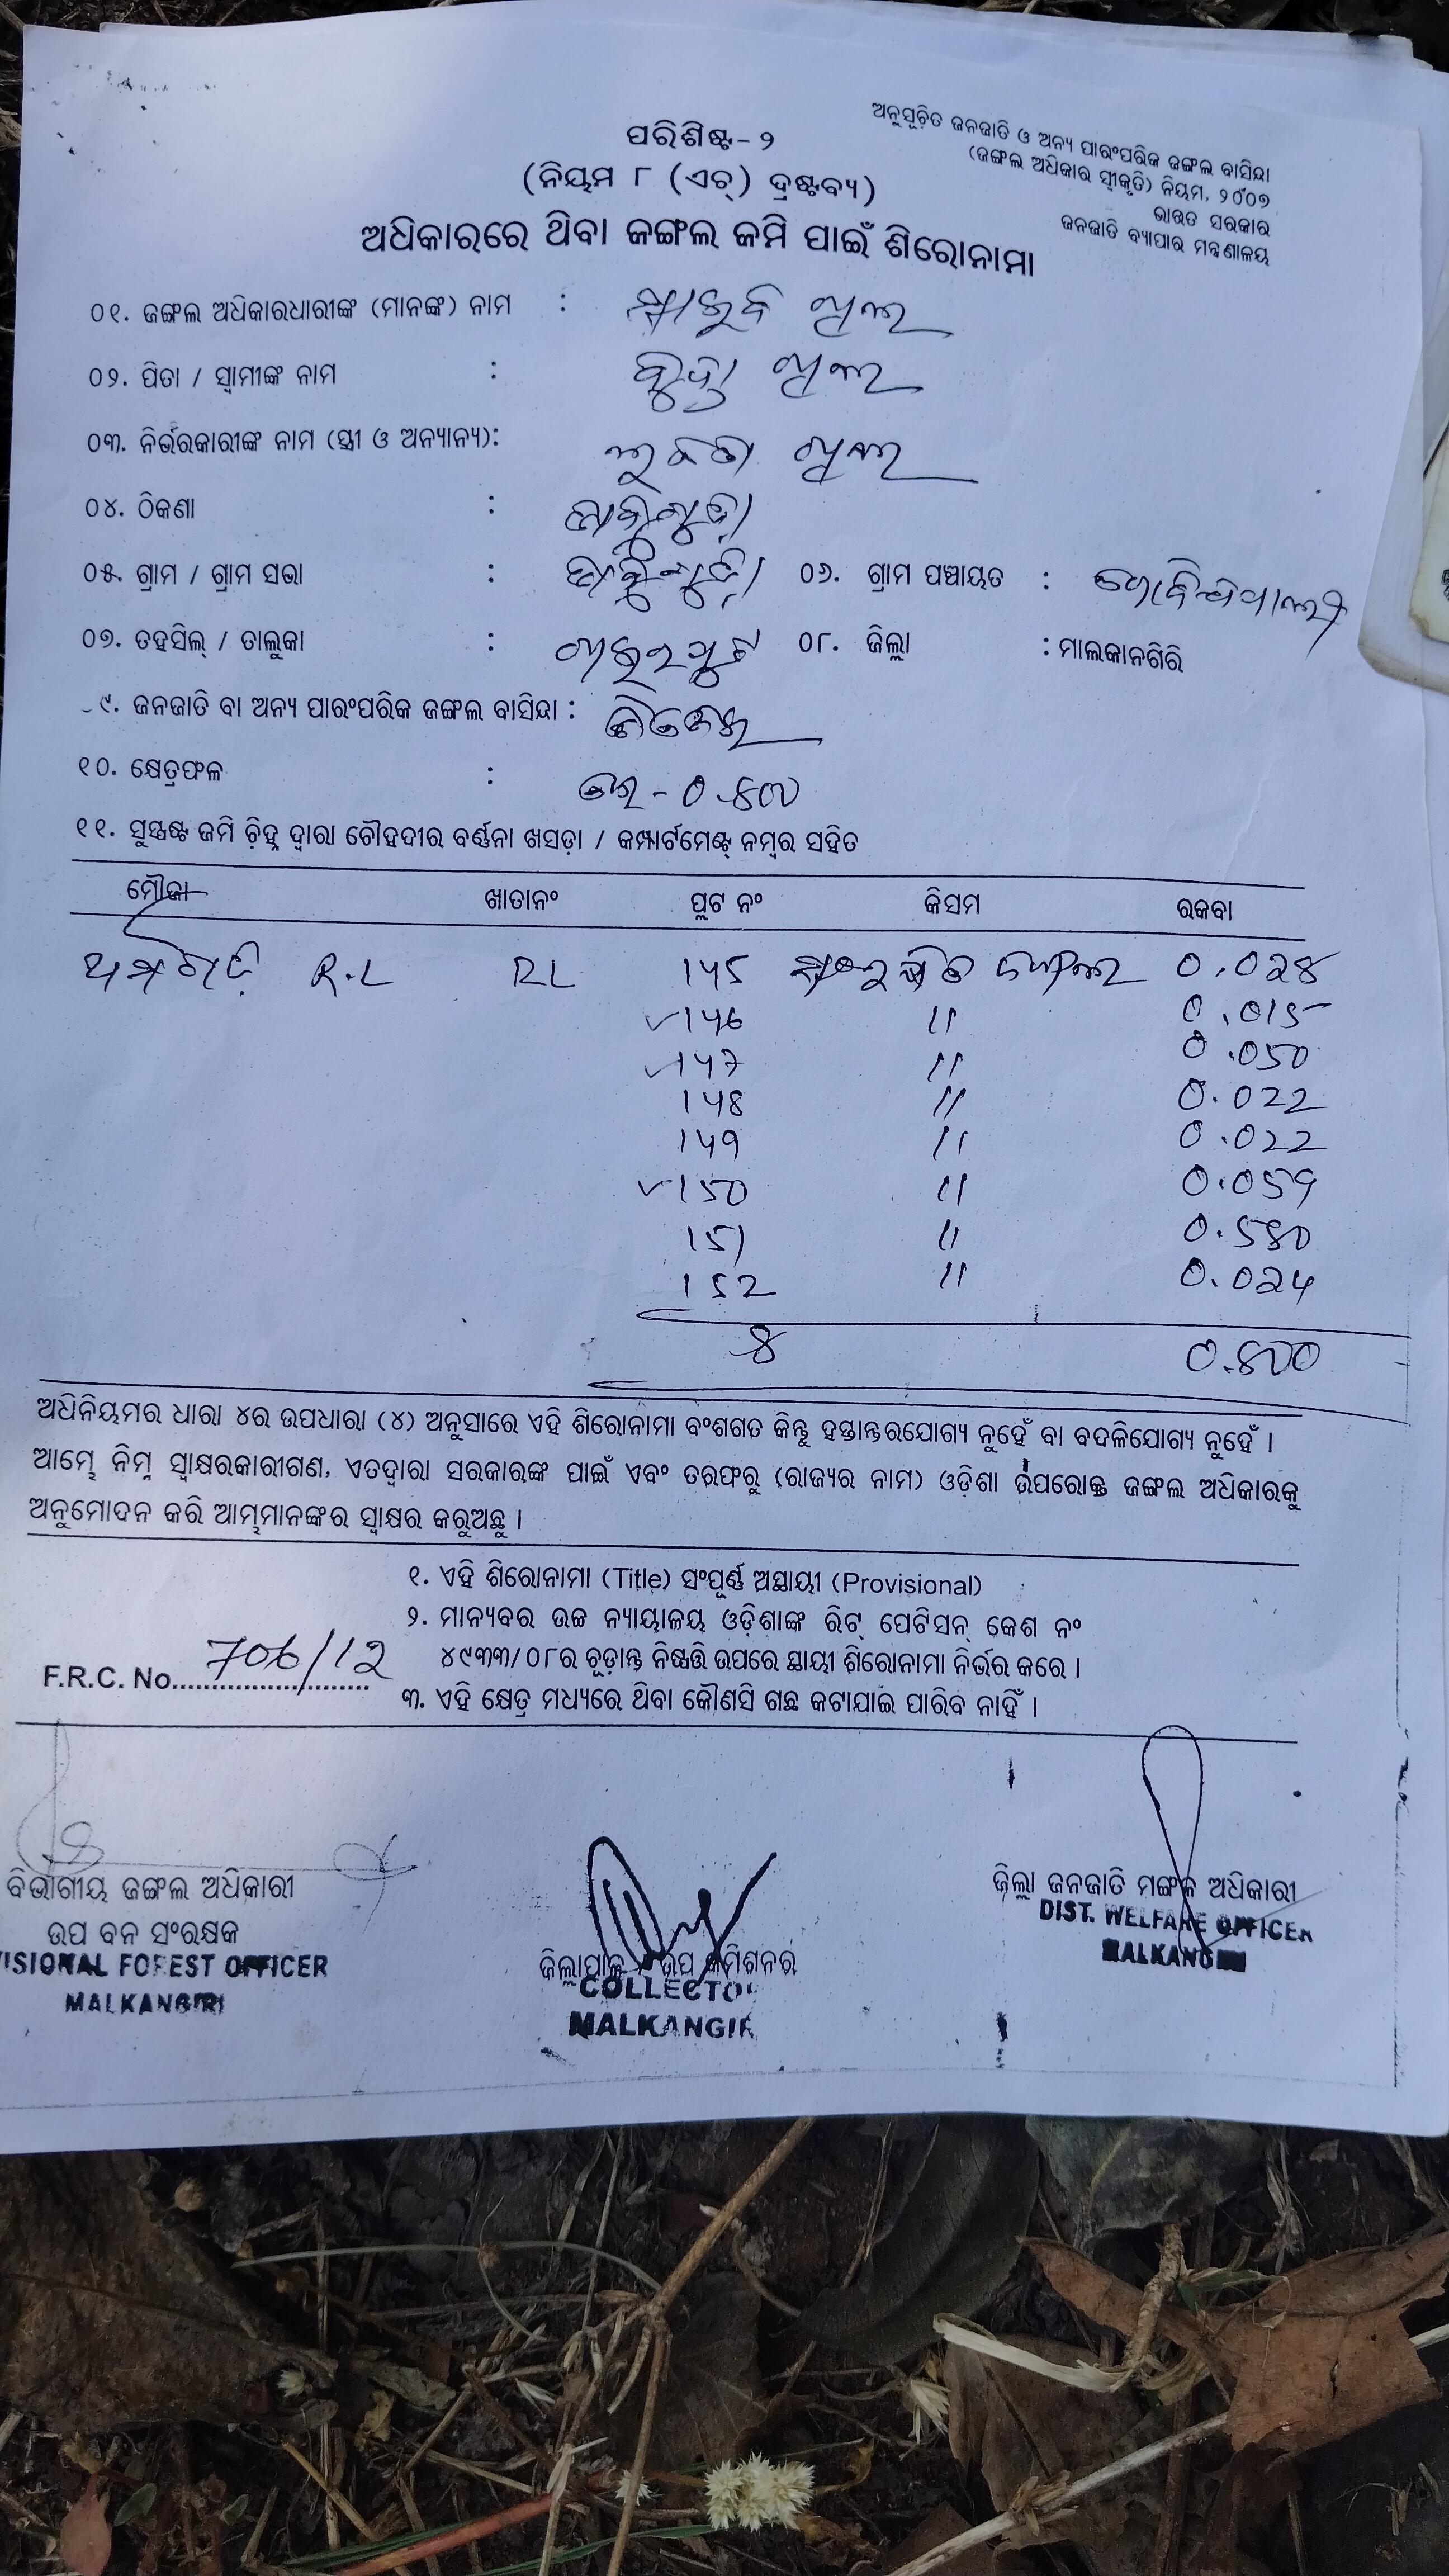 ଅନୁସୂଚିତ ଜନଜାତି ଓ ଅନ୍ୟ ପାରଂପରିକ ଜଙ୍ଗଲ ବାସିନ୍ଦା
(ଜଙ୍ଗଲ ଅଧିକାର ସ୍ୱୀକୃତି) ନିୟମ, ୨୦୦୭
ଭାରତ ସରକାର
ଜନଜାତି ବ୍ୟାପାର ମନ୍ତ୍ରଣାଳୟ
ପରିଶିଷ୍ଟ-୨
(ନିୟମ ୮ (ଏଚ୍) ଦ୍ରଷ୍ଟବ୍ୟ)
ଅଧିକାରରେ ଥିବା ଜଙ୍ଗଲ ଜମି ପାଇଁ ଶିରୋନାମା
୦୧. ଜଙ୍ଗଲ ଅଧିକାରଧାରୀଙ୍କ (ମାନଙ୍କ) ନାମ :
୦୨. ପିତା / ସ୍ୱାମୀଙ୍କ ନାମ :
୦୩. ନିର୍ଭରକାରୀଙ୍କ ନାମ (ସ୍ତ୍ରୀ ଓ ଅନ୍ୟାନ୍ୟ):
୦୪. ଠିକଣା :
୦୫. ଗ୍ରାମ / ଗ୍ରାମ ସଭା : ୦୬. ଗ୍ରାମ ପଞ୍ଚାୟତ :
୦୭. ତହସିଲ୍ / ତାଲୁକା : ୦୮. ଜିଲ୍ଲା : ମାଲକାନଗିରି
୯. ଜନଜାତି ବା ଅନ୍ୟ ପାରଂପରିକ ଜଙ୍ଗଲ ବାସିନ୍ଦା :
୧୦. କ୍ଷେତ୍ରଫଳ :
୧୧. ସୁସ୍ପଷ୍ଟ ଜମି ଚିହ୍ନ ଦ୍ୱାରା ଚୌହଦୀର ବର୍ଣ୍ଣନା ଖସଡ଼ା / କମ୍ପାର୍ଟମେଣ୍ଟ୍ ନମ୍ବର ସହିତ
ମୌଜା ଖାତାନଂ ପ୍ଲଟ ନଂ କିସମ ରକବା
R.L RL 145 0.028
146 " 0.015
147 " 0.050
148 " 0.022
149 " 0.022
150 " 0.059
151 " 0.580
152 " 0.024
8 0.800
ଅଧିନିୟମର ଧାରା ୪ର ଉପଧାରା (୪) ଅନୁସାରେ ଏହି ଶିରୋନାମା ବଂଶଗତ କିନ୍ତୁ ହସ୍ତାନ୍ତରଯୋଗ୍ୟ ନୁହେଁ ବା ବଦଳିଯୋଗ୍ୟ ନୁହେଁ ।
ଆମ୍ଭେ ନିମ୍ନ ସ୍ୱାକ୍ଷରକାରୀଗଣ, ଏତଦ୍ୱାରା ସରକାରଙ୍କ ପାଇଁ ଏବଂ ତରଫରୁ (ରାଜ୍ୟର ନାମ) ଓଡ଼ିଶା ଉପରୋକ୍ତ ଜଙ୍ଗଲ ଅଧିକାରକୁ
ଅନୁମୋଦନ କରି ଆମ୍ଭମାନଙ୍କର ସ୍ୱାକ୍ଷର କରୁଅଛୁ ।
୧. ଏହି ଶିରୋନାମା (Title) ସଂପୂର୍ଣ୍ଣ ଅସ୍ଥାୟୀ (Provisional)
୨. ମାନ୍ୟବର ଉଚ୍ଚ ନ୍ୟାୟାଳୟ ଓଡ଼ିଶାଙ୍କ ରିଟ୍ ପେଟିସନ୍ କେଶ ନଂ
୪୯୩୩/୦୮ର ଚୂଡ଼ାନ୍ତ ନିଷ୍ପତ୍ତି ଉପରେ ସ୍ଥାୟୀ ଶିରୋନାମା ନିର୍ଭର କରେ ।
F.R.C. No. 706/12
୩. ଏହି କ୍ଷେତ୍ର ମଧ୍ୟରେ ଥିବା କୌଣସି ଗଛ କଟାଯାଇ ପାରିବ ନାହିଁ ।
ବିଭାଗୀୟ ଜଙ୍ଗଲ ଅଧିକାରୀ
ଉପ ବନ ସଂରକ୍ଷକ
ISIONAL FOREST OFFICER
MALKANGIRI
ଜିଲ୍ଲାପାଳ ଉପ କମିଶନର
COLLECTO
MALKANGIR
ଜିଲ୍ଲା ଜନଜାତି ମଙ୍ଗଳ ଅଧିକାରୀ
DIST. WELFARE OFFICER
MALKANG